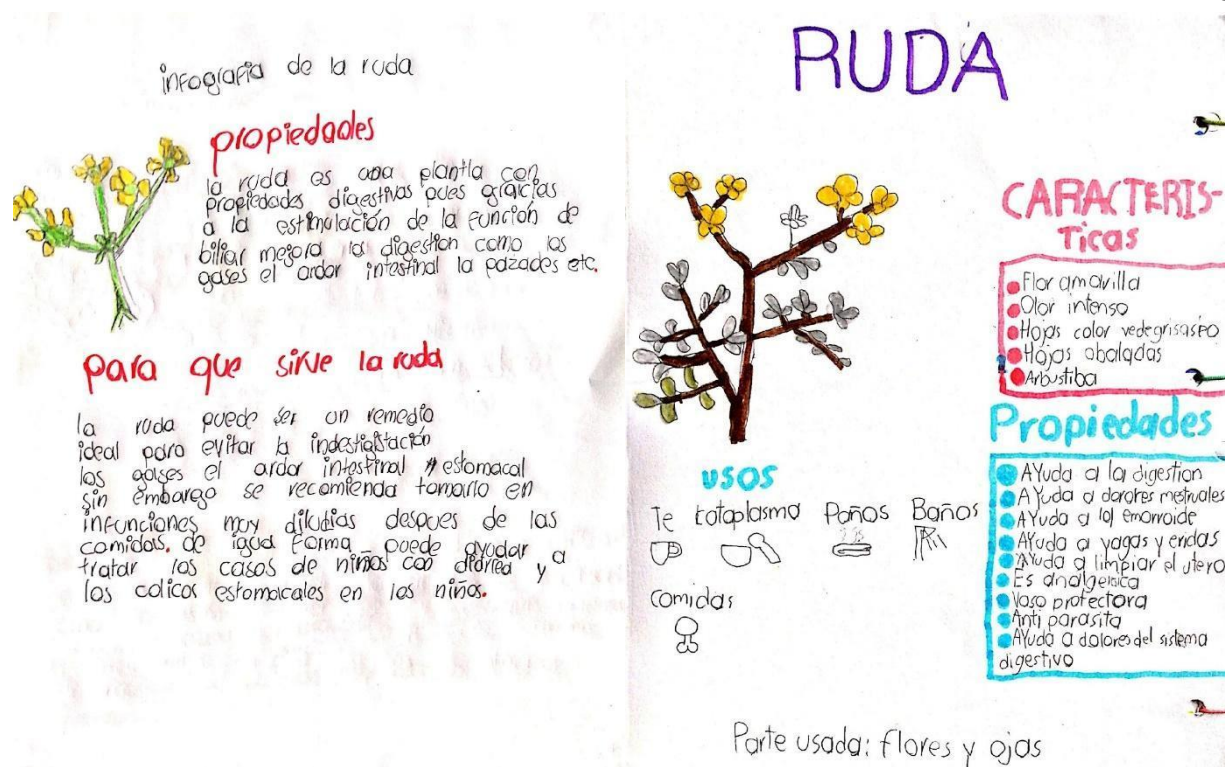 infografia de la ruda
propiedades
la ruda es una plantla con
propiedades digestivas pues graicias
a la estimulación de la función de
biliar mejora la digestion como los
gases el ardor intestinal la pazades etc.
para que sirve la ruda
la ruda puede ser un remedio
ideal para evitar la
los gaises el ardor intestinal y estomacal
sin embargo se recomienda tomarlo en
infunciones muy diludias despues de las
comidas. de igual forma puede ayudar a
tratar los casos de niños con diarrea y a
los colicos estomacales en los niños.
RUDA
CARACTERIS-
Ticas
Flor amarilla
Olor intenso
Hojas color vedegrisaseo
Hojas abaladas
Arbustiba
Propiedades
AYuda a la digestion
AYuda a dorores mestruales
AYuda a la emorroide
AYuda a yagas y eridas
AYuda a limpiar el utero
Es analgesica
Vaso protectora
Anti parasita
AYuda a dolores del sistema
digestivo
USOS
Te Cataplasma Paños Baños
comidas
Parte usada: flores y ojas